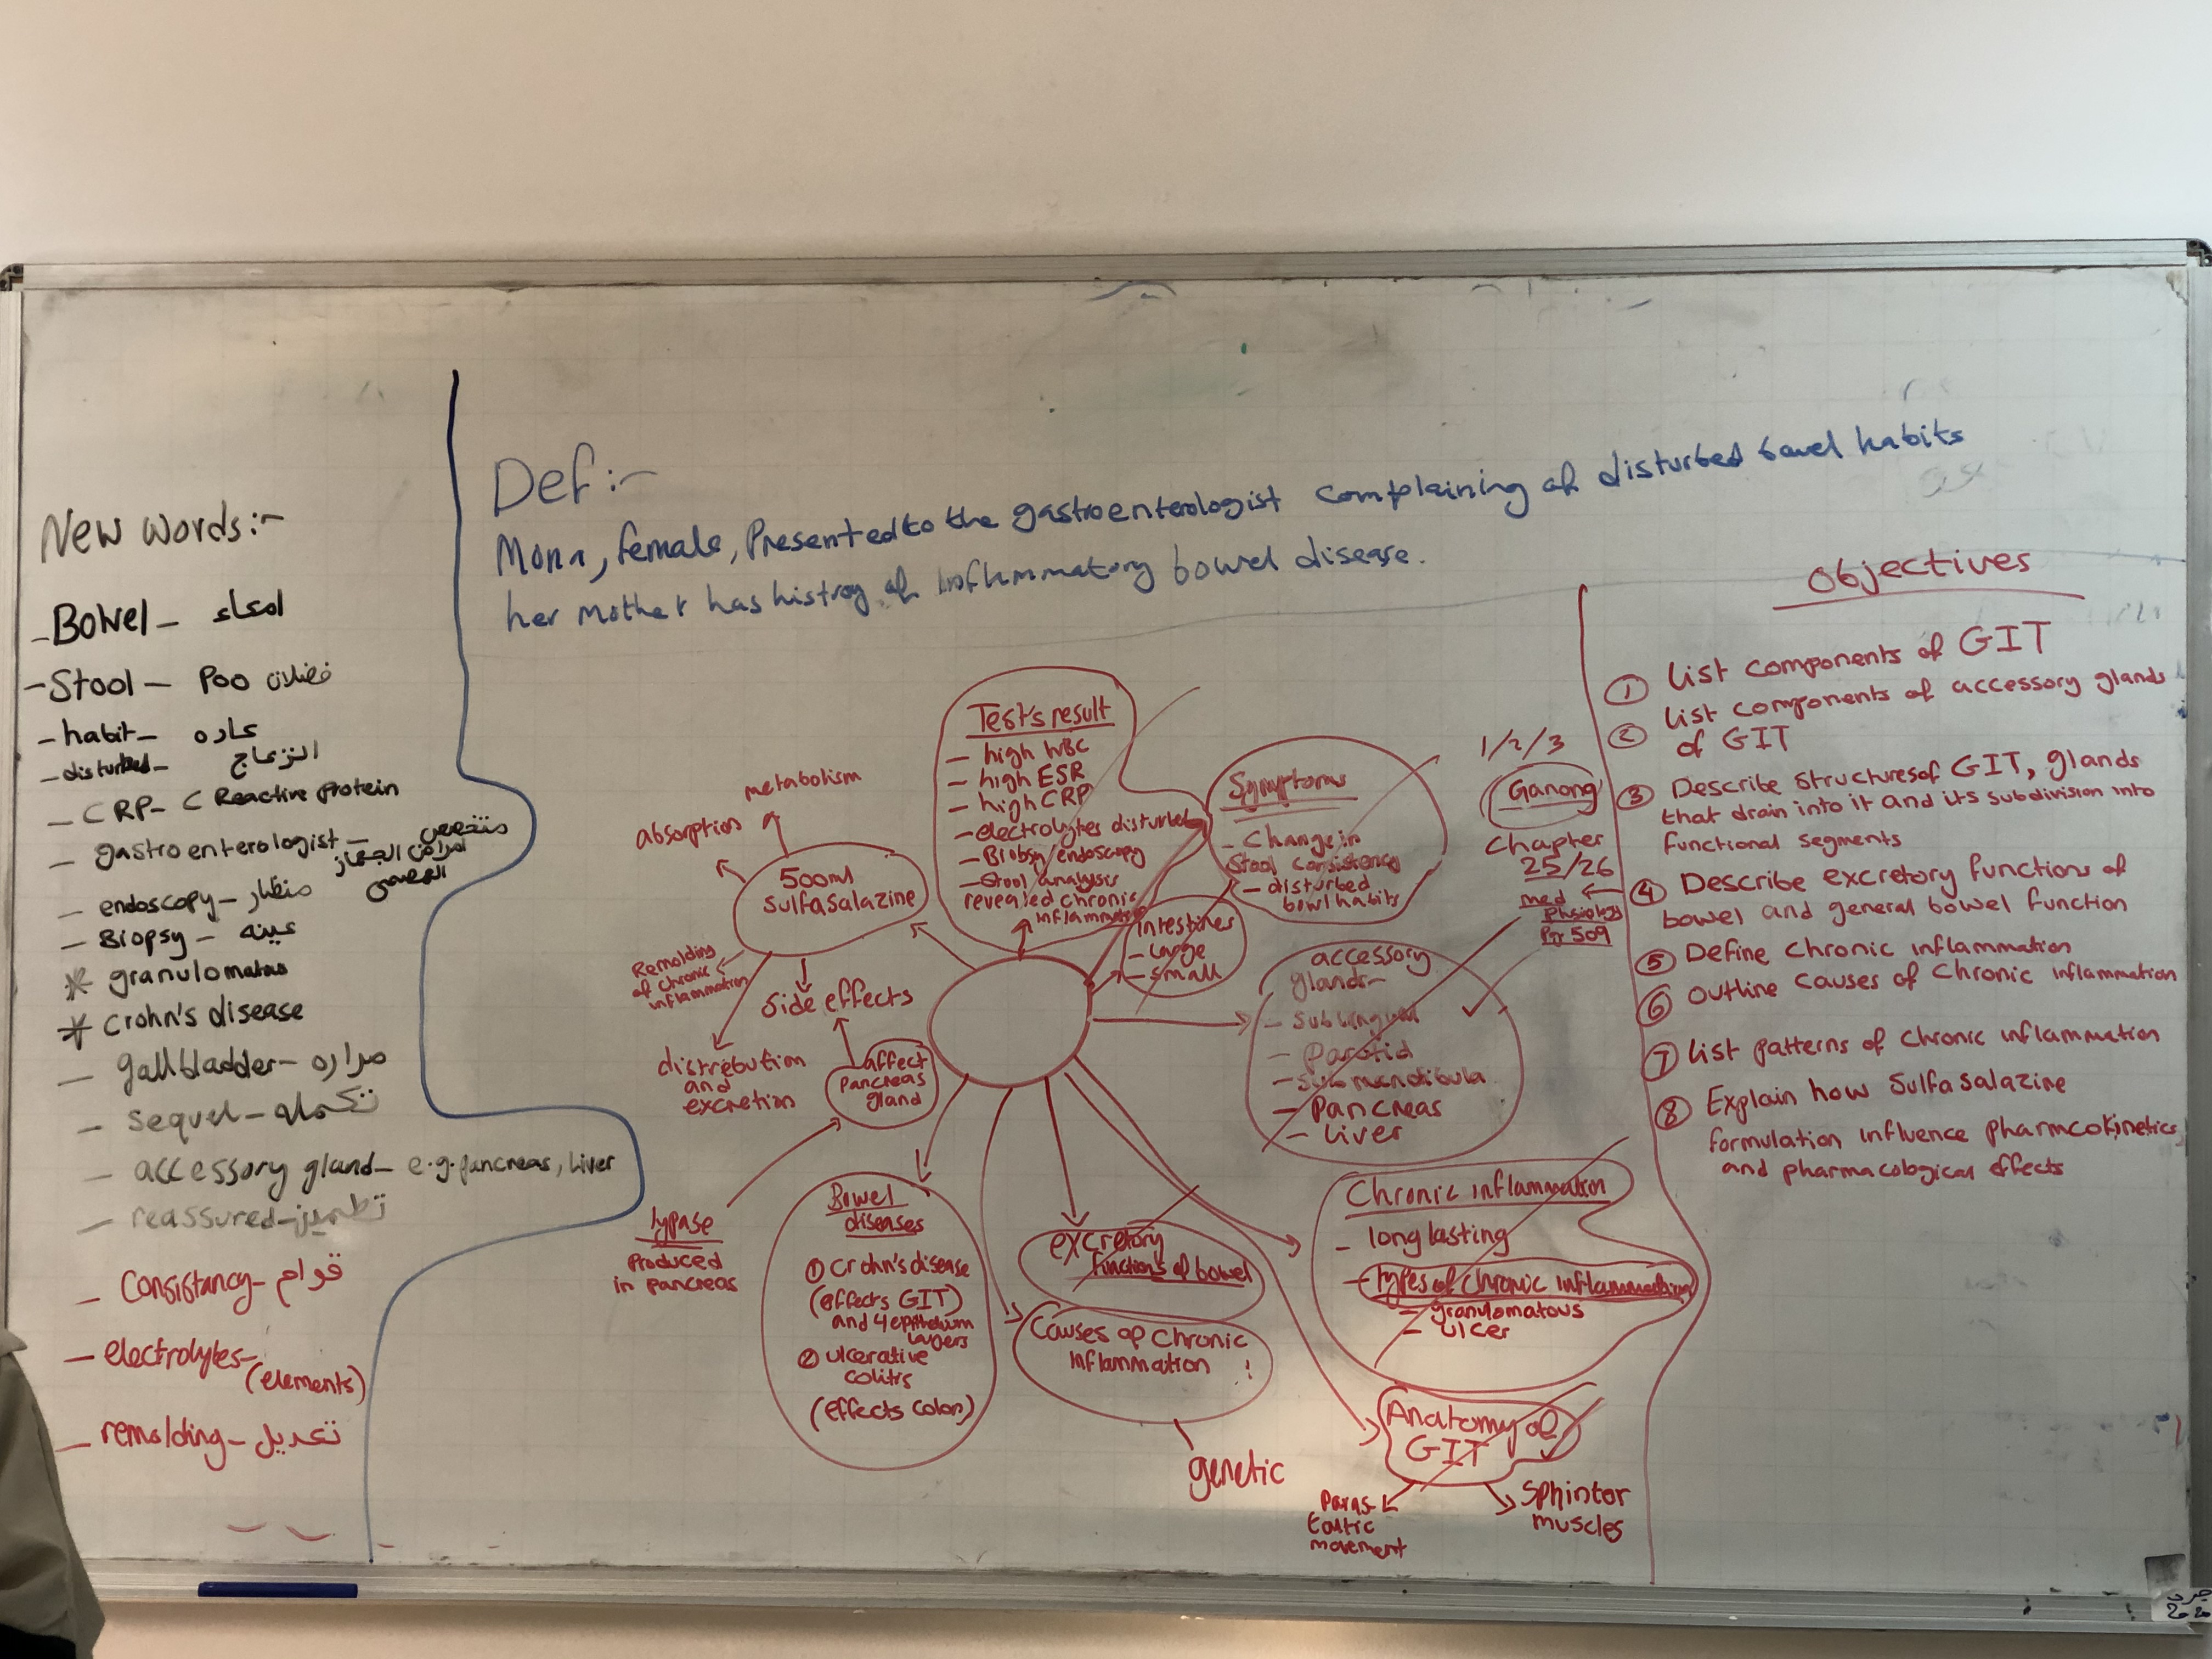 New words:-
- Bowel - امعاء
- Stool - Poo فضلات
- habit - عاده
- disturbed - انزعاج
- CRP - C Reactive protein
- gastroenterologist - متخصص
امراض الجهاز
الهضمي
- endoscopy - منظار
- Biopsy - عينه
* granulomatas
* Crohn's disease
- gallbladder - مراره
- sequel - تكمله
- accessory gland - e.g. pancreas, liver
- reassured - تطمين
- Consistancy - قوام
- electrolytes -
(elements)
- remolding - تعديل
Def :-
Mona, female, Presented to the gastroenterologist complaining of disturbed bowel habits
her mother has histroy of inflammatory bowel disease.
Test's result
- high WBC
- high ESR
- high CRP
- electrolytes disturbed
- Biobsy/endoscopy
- Stool analysis
revealed chronic
inflammation
Symptoms
- Change in
Stool consistency
- disturbed
bowl habits
Intestines
- Large
- small
1/2/3
Ganong
Chapter
25/26
med
physiology
Pg 509
metabolism
absorption
500ml
sulfasalazine
Remolding
of chronic
inflammation
side effects
distrebution
and
excretion
affect
pancreas
gland
lypase
produced
in pancreas
accessory
glands-
- sublingual
- Parotid
- submandibula
- Pancreas
- Liver
Bowel
diseases
① Crohn's disease
(effects GIT)
and 4 epithelium
layers
② ulcerative
colitis
(effects colon)
excretory
functions of bowel
Causes of chronic
inflammation !
genetic
Chronic inflammation
- long lasting
- types of chronic inflammation
- granulomatous
- ulcer
Anatomy of
GIT
Paras-
taltic
movement
Sphintor
muscles
objectives
① List components of GIT
② List components of accessory glands
of GIT
③ Describe structures of GIT, glands
that drain into it and its subdivision into
functional segments
④ Describe excretory functions of
bowel and general bowel function
⑤ Define chronic inflammation
⑥ Outline causes of chronic inflammation
⑦ List patterns of chronic inflammation
⑧ Explain how Sulfasalazine
formulation influence pharmcokinetics
and pharmacological effects